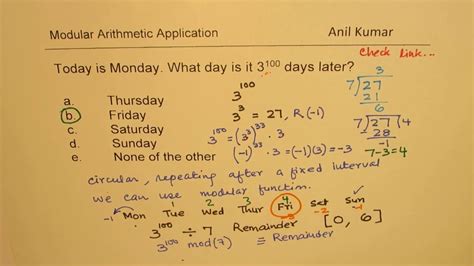 Modular Arithmetic Application
Anil Kumar
Check Link...
Today is Monday. What day is it 3^100 days later?
a. Thursday
b. Friday
c. Saturday
d. Sunday
e. None of the other
3^100
3^3 = 27, R(-1)
3^100 = (3^3)^33 · 3
(-1)^33 · 3 = (-1)(3) = -3
3
7)27
21
6
7)27(4
28
-1
7-3=4
circular, repeating after a fixed interval
we can use modular function.
1 2 3 4
-1 Mon Tue Wed Thur Fri Sat Sun
-3 -2 -1
3^100 ÷ 7 Remainder [0, 6]
3^100 mod(7) ≡ Remainder